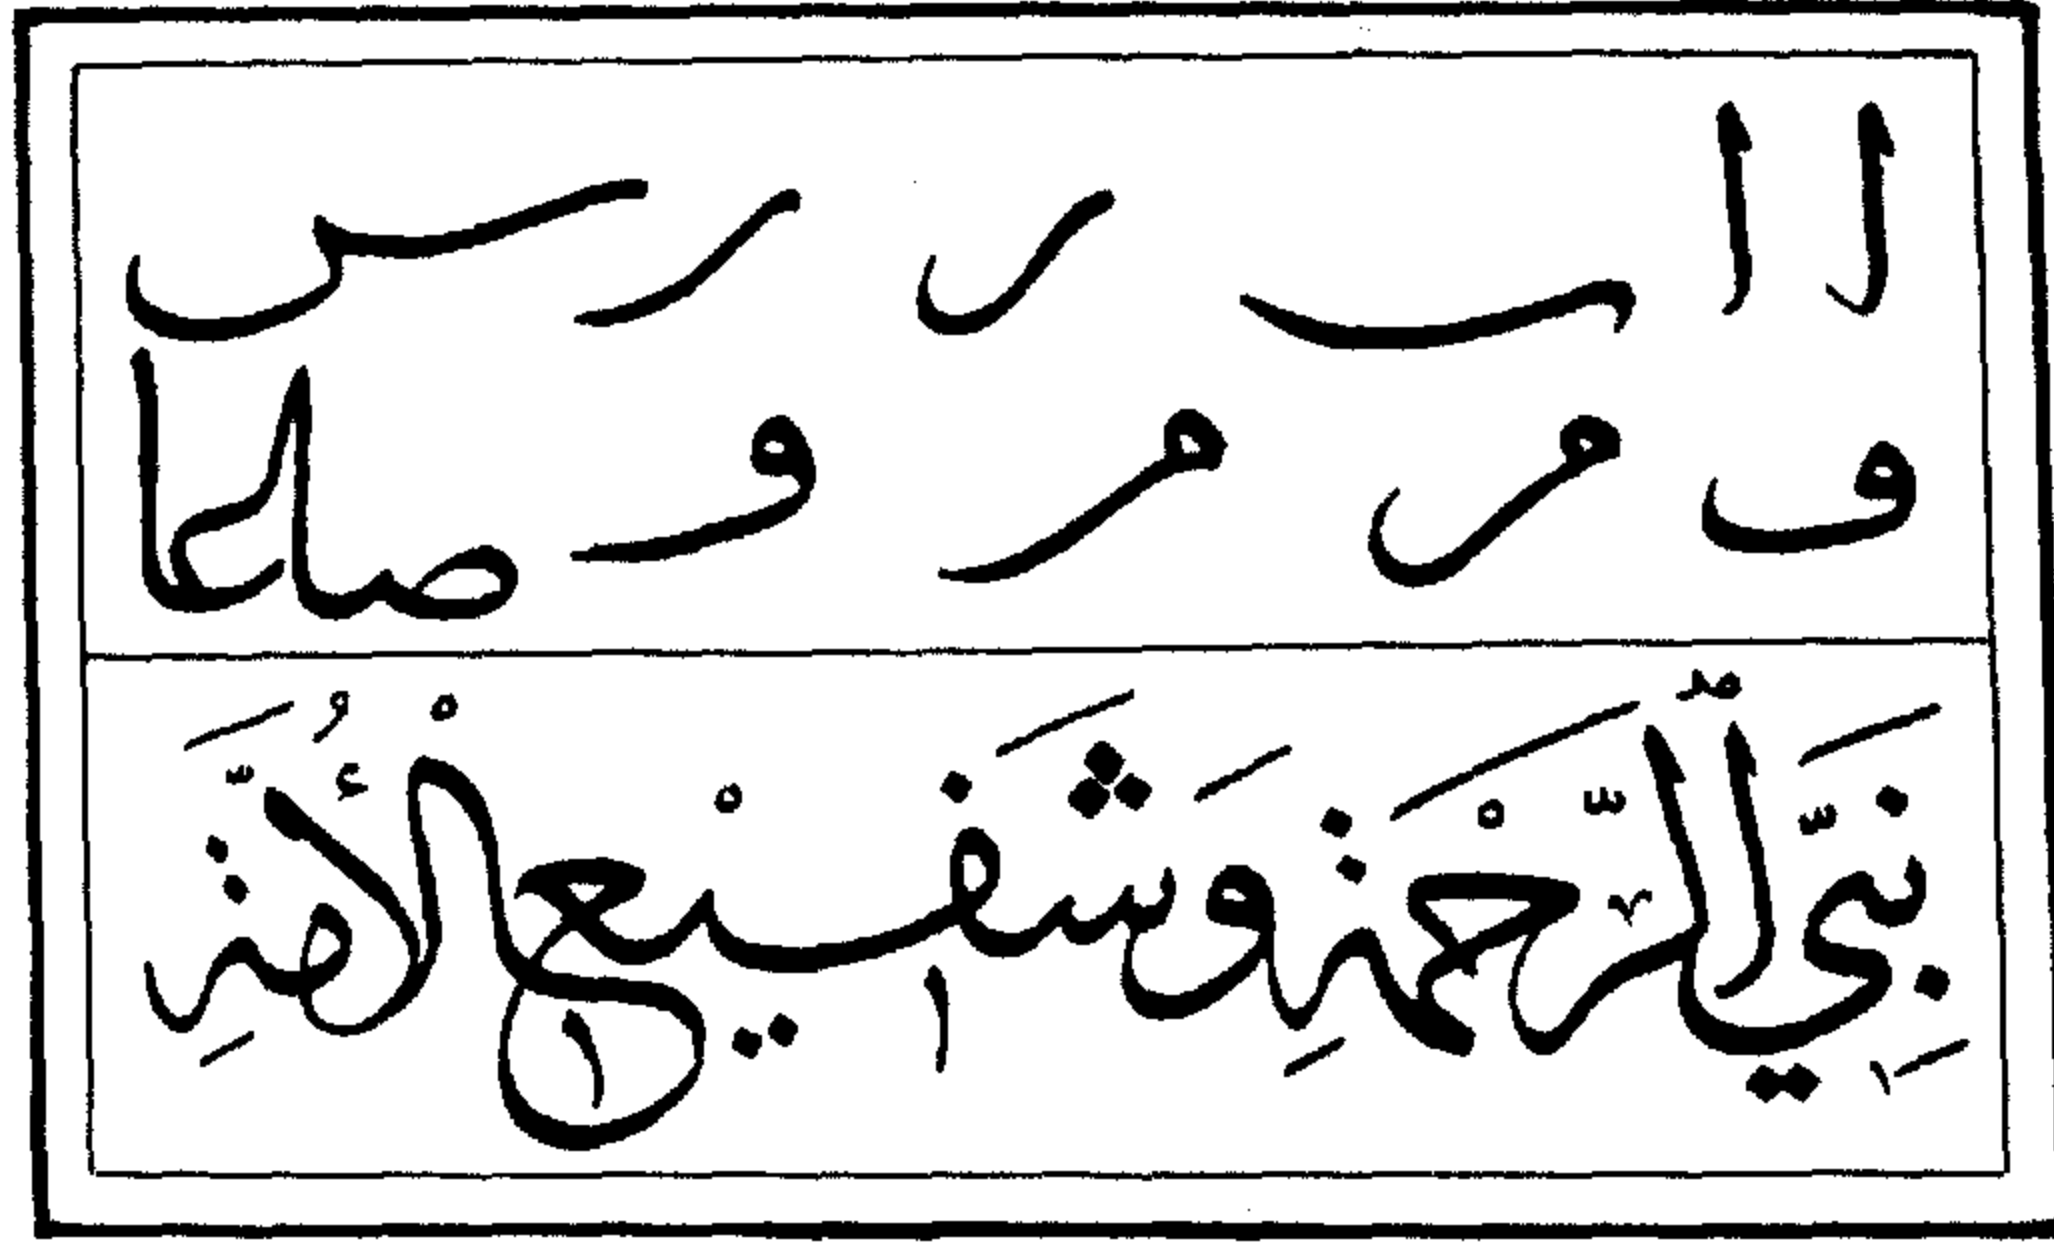 ا ا ب ر ر س
و م م و صلحا
نَبِيِّ الرَّحْمَةِ وَشَفَيْعِ الْأُمَّةِ